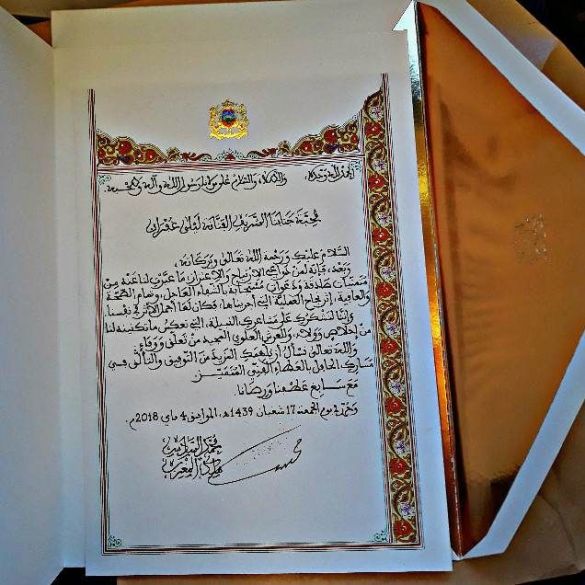 الحمد لله وحده والصلاة والسلام على مولانا رسول الله وآله وصحبه
محبة جنابنا الشريف الفنانة ليلى غفران
السلام عليك ورحمة الله تعالى وبركاته،
وبعد، فإنه لمن دواعي الارتياح والاعتزاز ما عبرت لنا عنه من
متمنيات صادقة ودعوات مشفوعة بالشفاء العاجل، ودوام الصحة
والعافية، إثر نجاح العملية التي أجريناها، فكان لها أجمل الأثر في نفسنا.
وإننا لنشكرك على مشاعرك النبيلة، التي تعكس ما تكنينه لنا
من إخلاص وولاء، وللعرش العلوي المجيد من تعلق ووفاء،
والله تعالى نسأل أن يلهمك المزيد من التوفيق والتألق في
مسارك الحافل بالعطاء الفني المتميز.
مع سابغ عطفنا ورضانا.
وحرر في يوم الجمعة 17 شعبان 1439هـ، الموافق 4 ماي 2018م.
محمد السادس
ملك المغرب